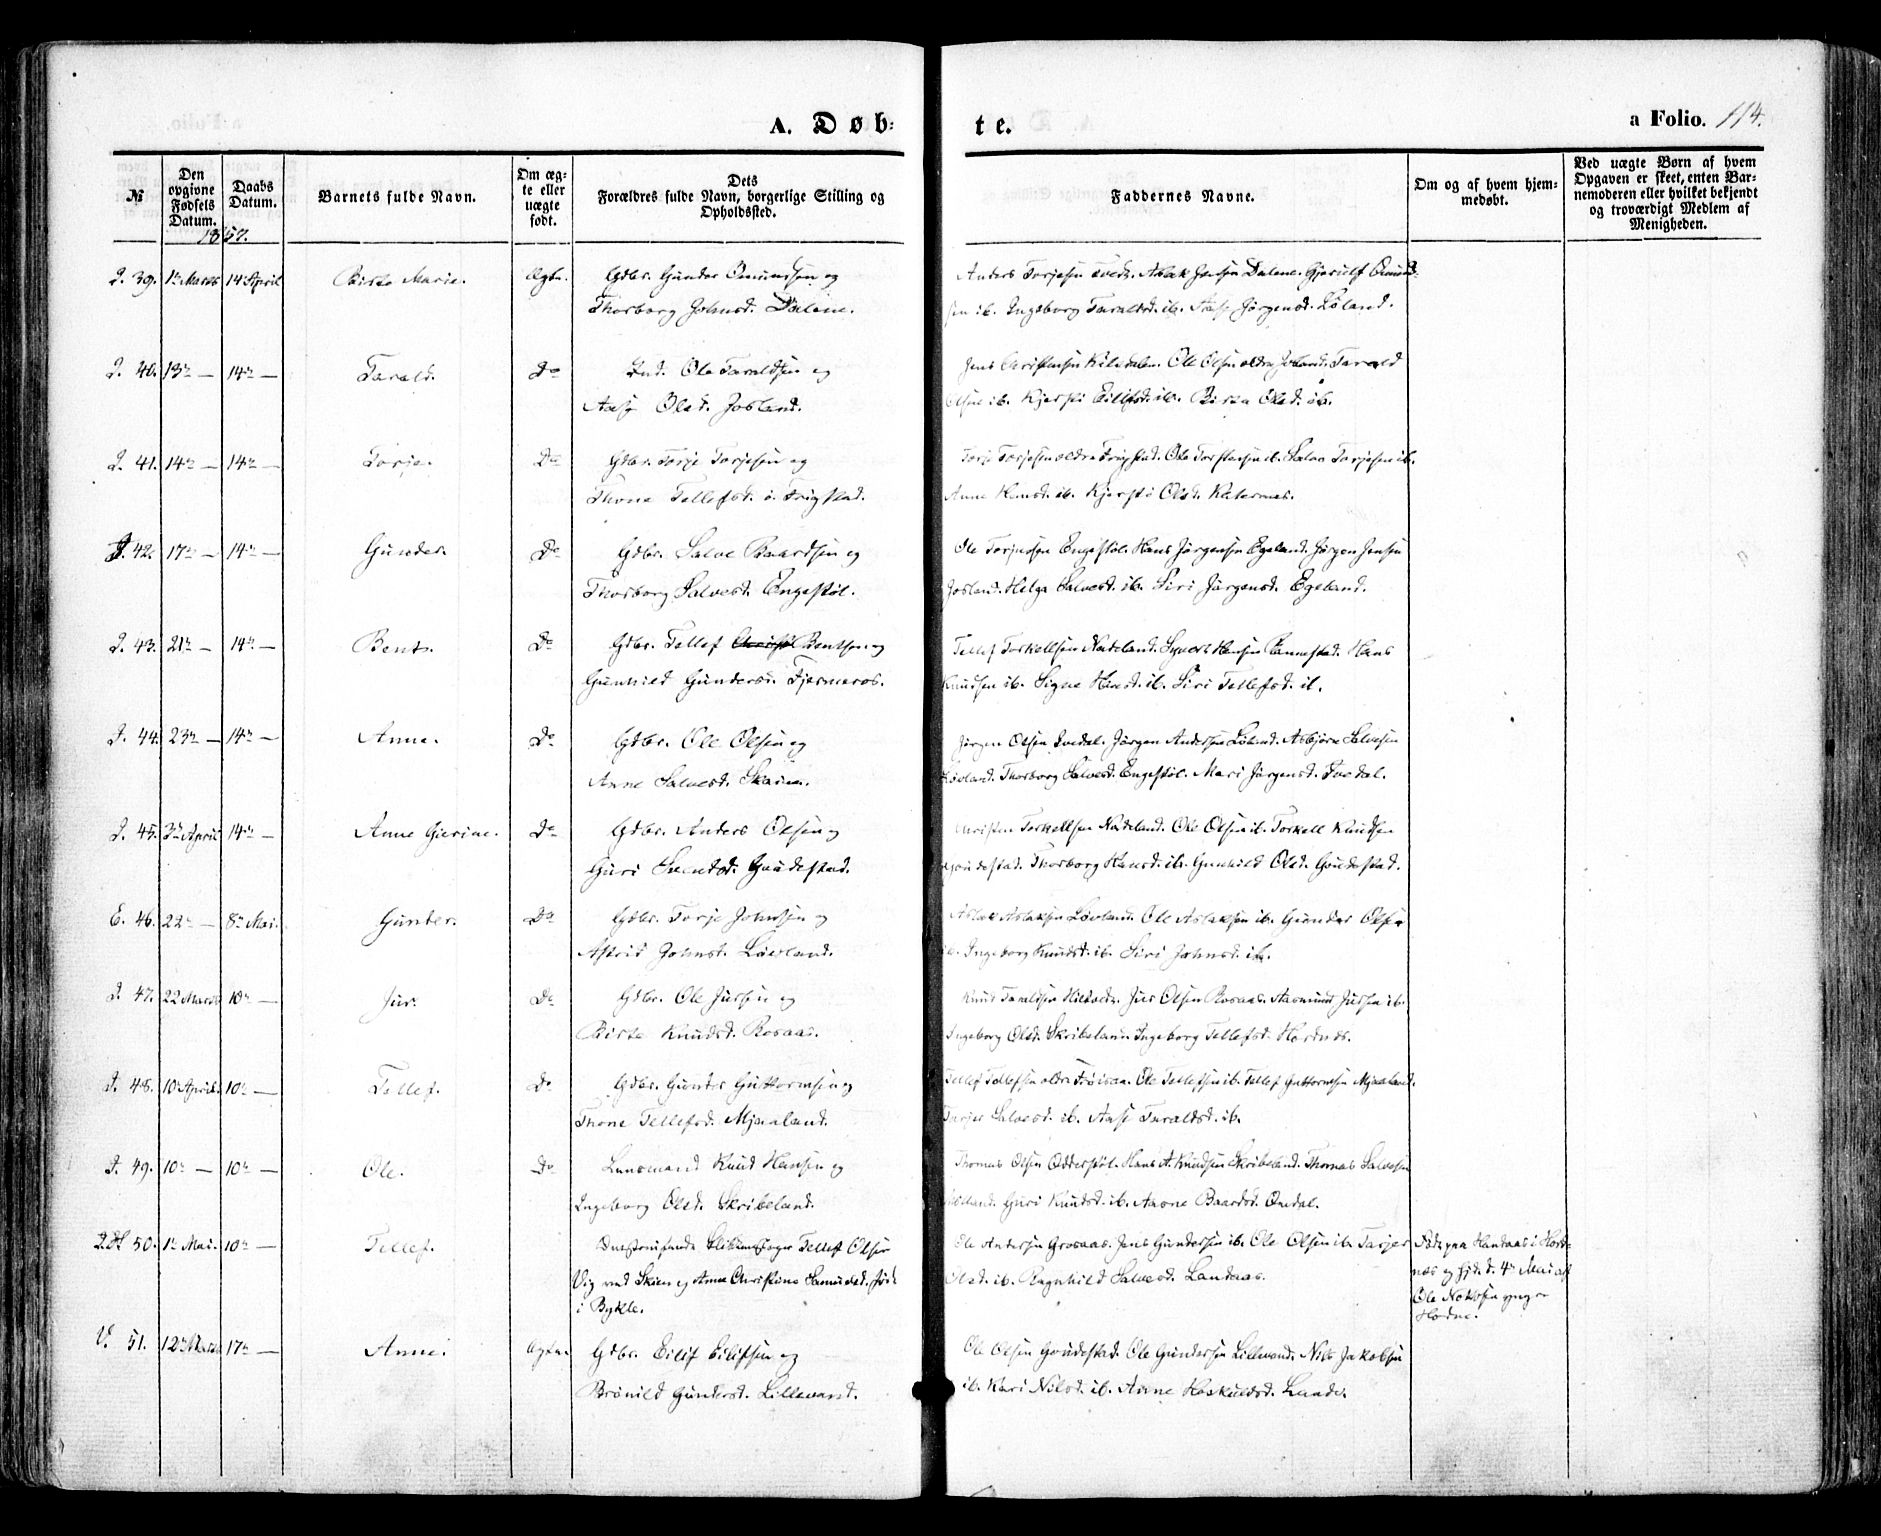 A. Døb-
te.
a Folio. 114.
№
Den opgivne Fødsels Datum.
Daabs Datum.
Barnets fulde Navn.
Om ægte eller uægte født.
Dets Forældres fulde Navn, borgerlige Stilling og Opholdssted.
Faddernes Navne.
Om og af hvem hjemmedøbt.
Ved uægte Børn af hvem Opgaven er skeet, enten Barnemoderen eller hvilket bekjendt og troværdigt Medlem af Menigheden.
1857.
39. 1ste Marts 14 April Birte Marie. Ægte. Gdbr. Gunder Omundsen og
Thorborg Johnsd. Dalene.
Anders Torjesen Tvedt. Aslak Jensen Dalene. Gjerulf Omund-
sen ib. Ingeborg Taraldsd. ib. Aase Jörgensd. Löland.
40. 13de — 14de — Tarald. Do Ind. Ole Taraldsen og
Aase Olsd. Josland.
Jens Christensen Kiledalen. Ole Olsen ældre Josland. Tarald
Olsen ib. Kjersti Eilifsd. ib. Birta Olsd. ib.
41. 14de — 14de — Torje. Do Gdbr. Torje Torjesen og
Thone Tellefsd. Frigstad.
Torje Torjesen ældre Frigstad. Ole Torstensen ib. Salve Torjesen ib.
Anne Hansd. ib. Kjersti Olsd. Katernes.
42. 17de — 14de — Gunder. Do Gdbr. Salve Baardsen og
Thorborg Salvesd. Engestöl.
Ole Torjusen Engestöl. Hans Jörgensen Egeland. Jörgen Jensen
Josland. Helga Salvesd. ib. Siri Jörgensd. Egeland.
43. 21de — 14de — Bent. Do Gdbr. Tellef Bentsen og
Gunhild Gundersd. Fjermeros.
Tellef Torkelsen Nateland. Syvert Hansen Rannestad. Hans
Knudsen ib. Signe Hansd. ib. Siri Tellefsd. ib.
44. 23de — 14de — Anne. Do Gdbr. Ole Olsen og
Anne Salvesd. Skaien.
Jörgen Olsen Qvedal. Jörgen Andersen Löland. Asbjörn Salvesen
Thorborg Salvesd. Engestöl. Mari Jörgensd. Tvedal.
45. 3die April 14de — Anne Gierine. Do Gdbr. Anders Olsen og
Guri Svendsd. Gaudestad.
Christen Torkelsen Nateland. Ole Olsen ib. Torkell Knudsen
Gaudestad. Thorborg Hansd. ib. Gunhild Olsd. Gaudestad.
E. 46. 22de — 8de Mai. Gunder. Do Gdbr. Torje Johnsen og
Astrid Johnsd. Lövland.
Aslak Aslaksen Lövland. Ole Aslaksen ib. Gunder Olsen
ib. Ingeborg Knudsd. ib. Siri Johnsd. ib.
47. 22 Marts 10de — Jur. Do Gdbr. Ole Jursen og
Birte Knudsd. Rosaas.
Knud Taraldsen Hiltveit. Jur Olsen Rosaas. Aasmund Jursen ib.
Ingeborg Olsd. Skribeland. Ingeborg Tellefsd. Hordnes.
48. 10de April. 10de — Tellef. Do Gdbr. Gunder Guttormsen og
Thone Tellefsd. Mjaaland.
Tellef Tellefsen ældre Fröisaa. Ole Tellefsen ib. Tellef Guttormsen Mjaaland.
Tarjer Salvesd. ib. Aase Taraldsd. ib.
49. 10de — 10de — Ole. Do Lensmand Knud Hansen og
Ingeborg Olsd. Skribeland.
Thomas Olsen Odderstöl. Hans A. Knudsen Skribeland. Thomas Salvesen
Guri Knudsd. ib. Aasne Baardsd. Omdal.
50. 1ste Mai. 10de — Tellef. Tellef Olsen
Vig ved Skien og Anne Christine Samuelsd. född
i Bykle.
Ole Andersen Grosaas. Jens Gundersen ib. Ole Olsen ib. Tarjer
Olsd. ib. Ragnhild Salvesd. Landaas.
Födt paa Handaas i Hord-
nes og hjd. d. 4de Mai af
Ole Notosen yngre
Hodne.
V. 51. 12te Marts 17de — Anne. Ægte. Gdbr. Eilif Eilifsen og
Brönild Gundersd. Lillevand.
Ole Olsen Gaudestad. Ole Gundersen Lillevand. Nils Jakobsen
ib. Kari Nilsd. ib. Anne Haskuldsd. Lande.